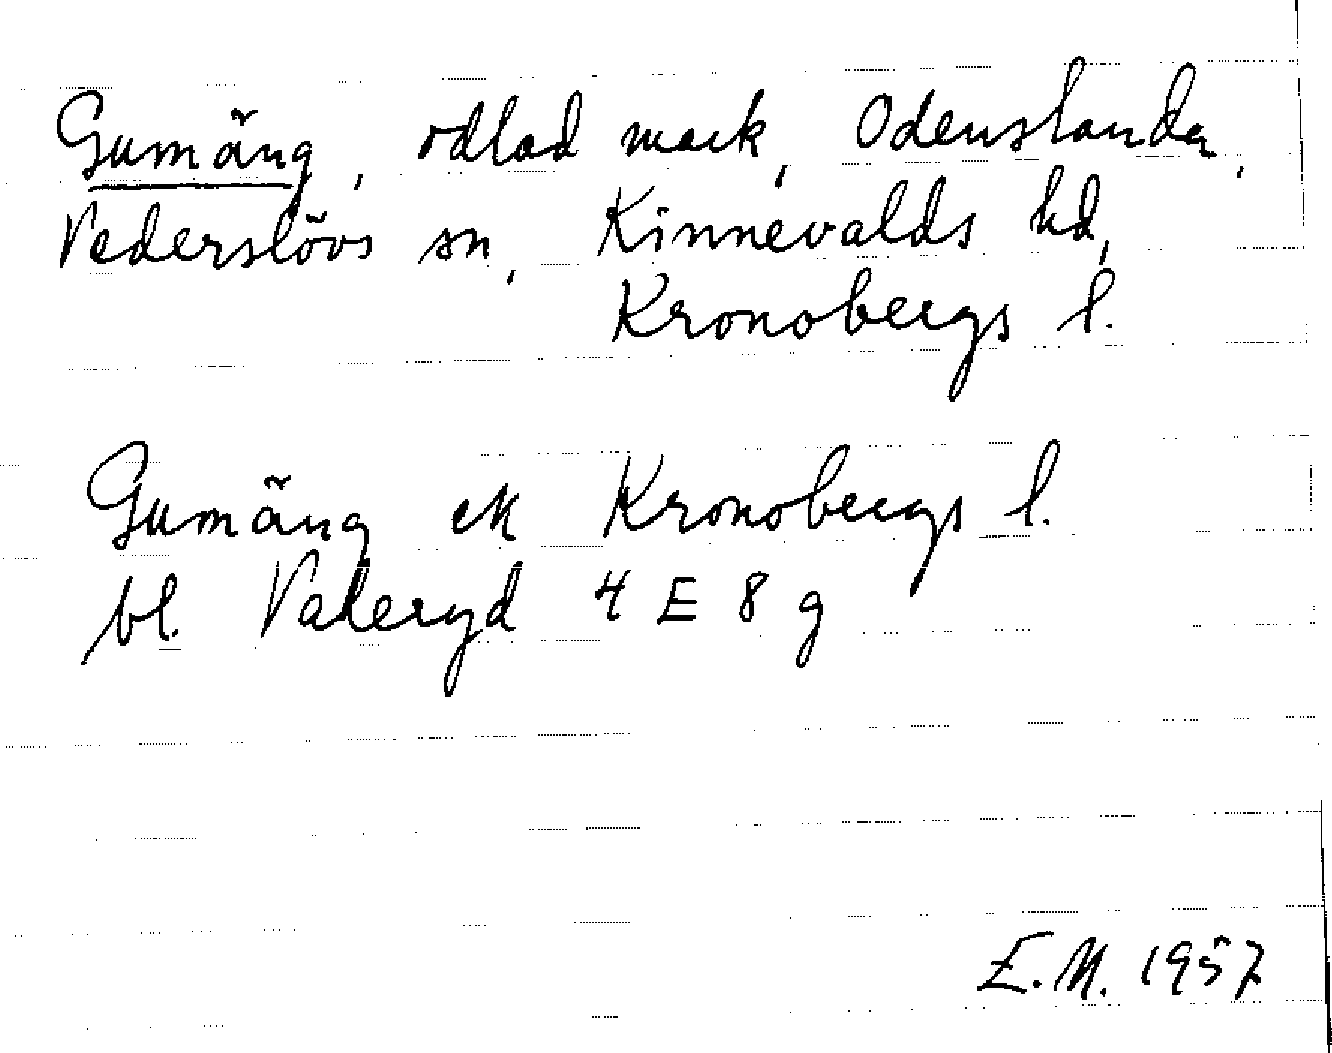 Gumäng, odlad mark, Odenslanda,
Vederslövs sn, Kinnevalds hd,
Kronobergs l.
Gumäng ek Kronobergs l.
bl. Vaderyd 4 E 8 g
E.M. 1957